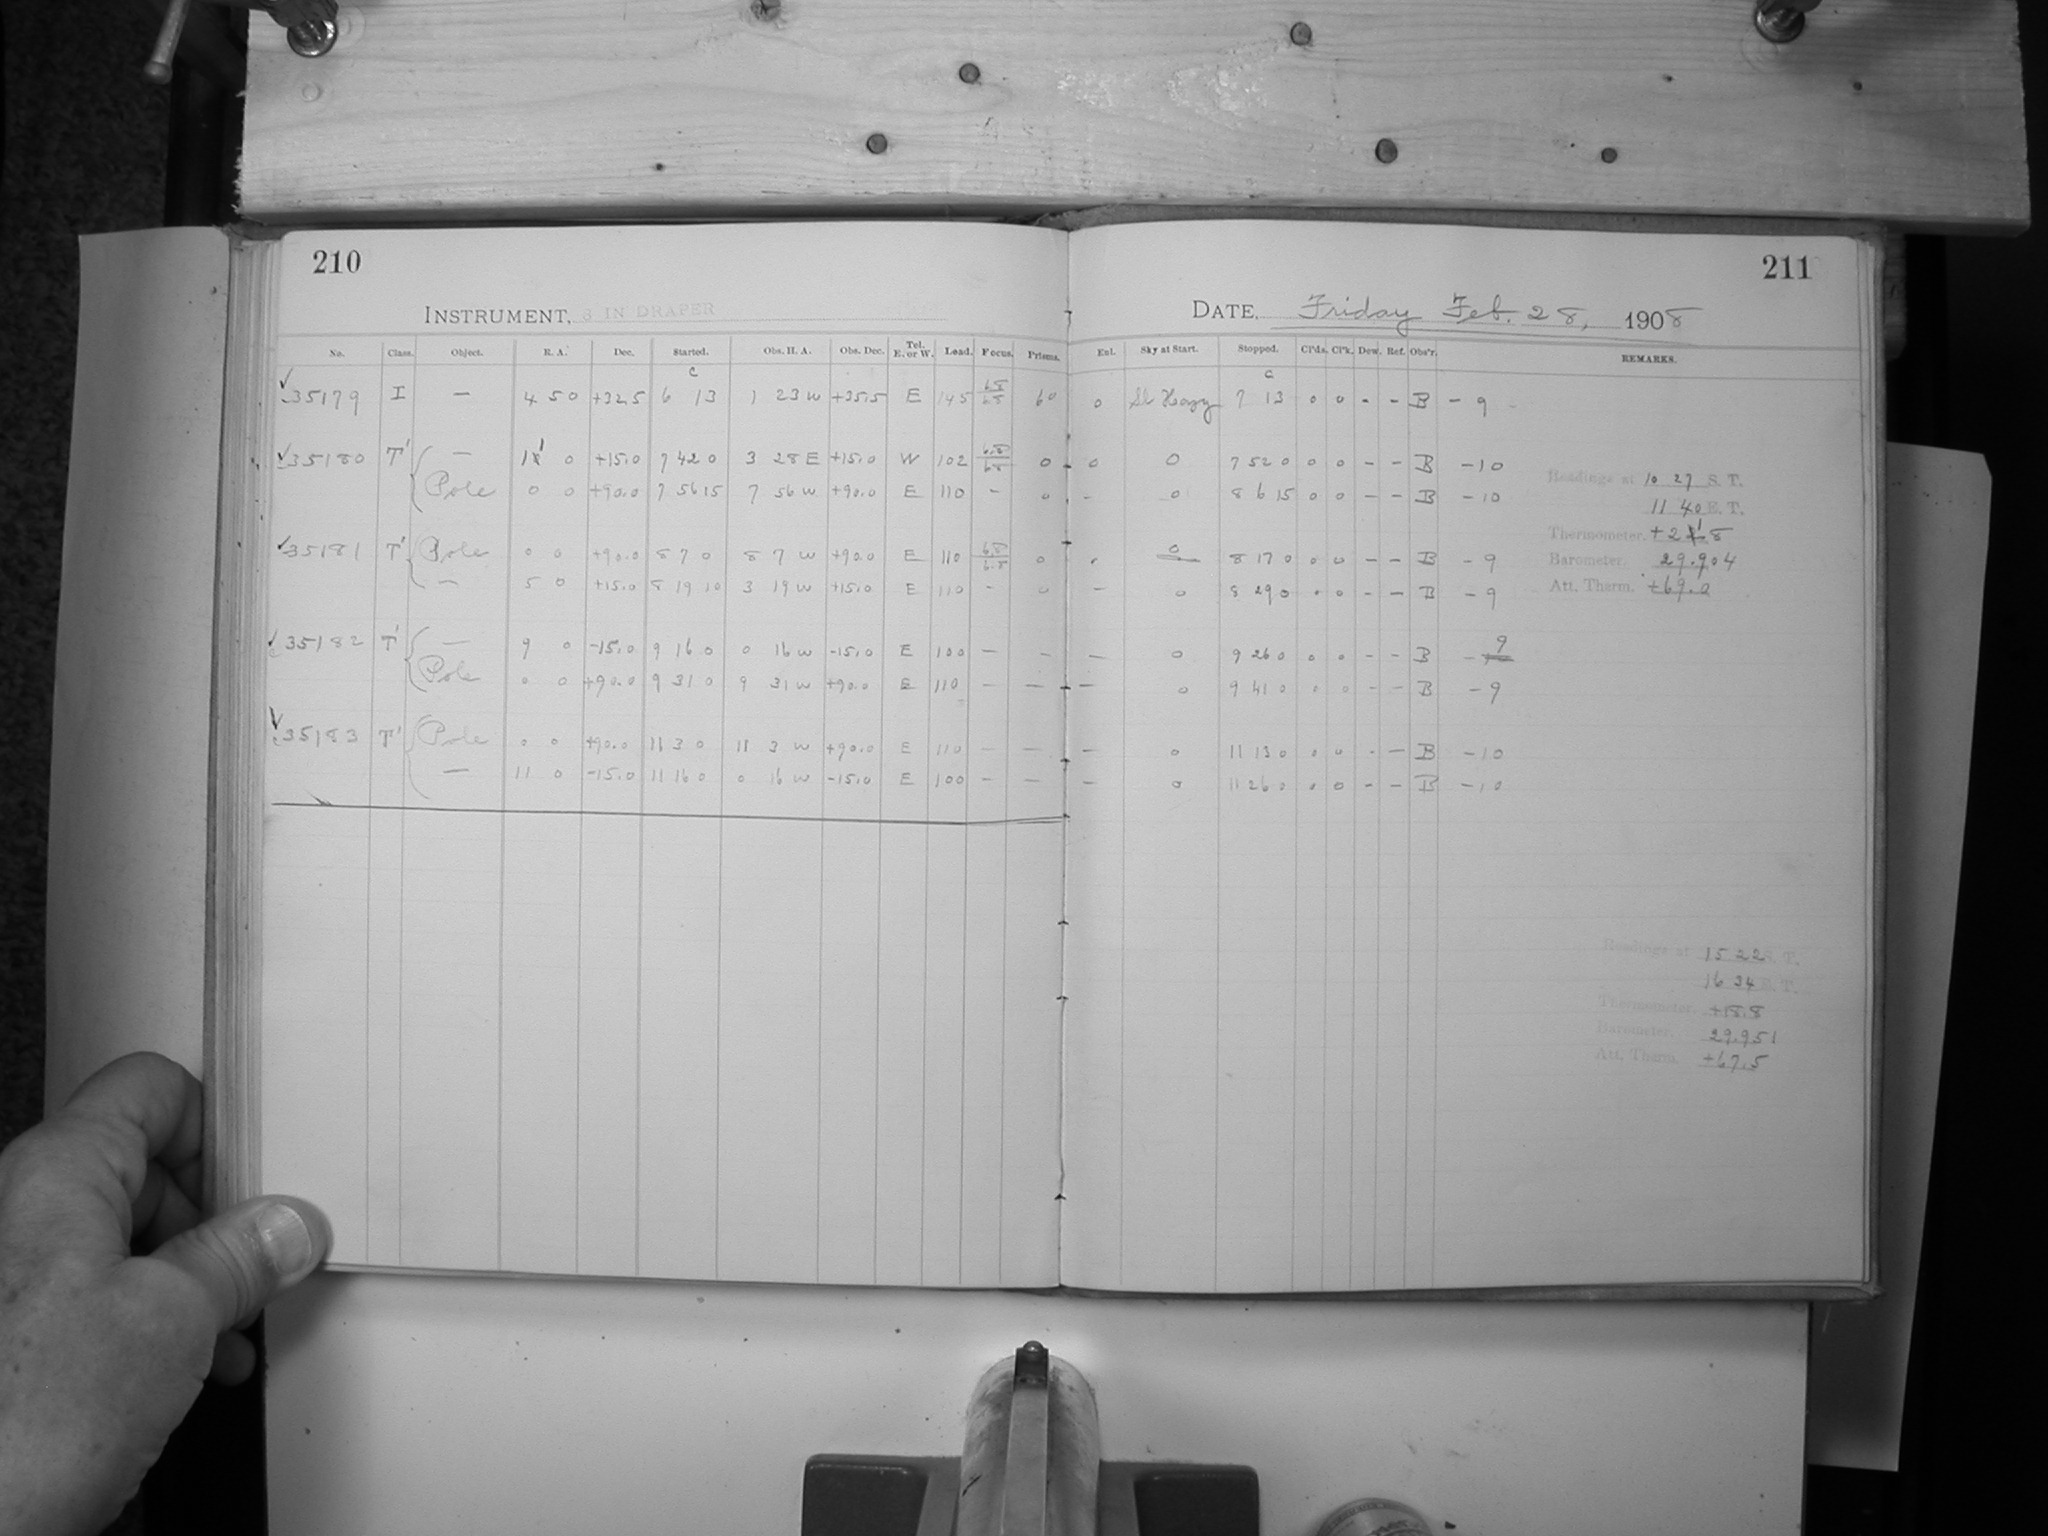 210
INSTRUMENT, 8 IN DRAPER
No. Class. Object. R. A. Dec. Started. Obs. H. A. Obs. Dec. Tel. E. or W. Load. Focus. Prisms.
35179 I — 4 50 +32.5 6 13 1 23 W +35.5 E 145 6.8 6.8 60
35180 T' — 11 0 +15.0 7 42 0 3 28 E +15.0 W 102 6.8 6.8 0
Pole 0 0 +90.0 7 56 15 7 56 W +90.0 E 110 - 0
35181 T' Pole 0 0 +90.0 8 7 0 8 7 W +90.0 E 110 6.8 6.8 0
— 5 0 +15.0 8 19 10 3 19 W +15.0 E 110 - 0
35182 T' — 9 0 -15.0 9 16 0 0 16 W -15.0 E 100 — —
Pole 0 0 +90.0 9 31 0 9 31 W +90.0 E 110 — —
35183 T' Pole 0 0 +90.0 11 3 0 11 3 W +90.0 E 110 — —
— 11 0 -15.0 11 16 0 0 16 W -15.0 E 100 — —
211
DATE, Friday Feb. 28, 1908
Enl. Sky at Start. Stopped. Cl'ds. Cl'k. Dew. Ref. Obs'r. REMARKS.
0 Sl Hazy 7 13 0 0 - - B - 9
0 0 7 52 0 0 0 - - B - 10
- 0 8 6 15 0 0 - - B - 10
0 8 17 0 0 0 - - B - 9
— 0 8 29 0 0 0 - - B - 9
— 0 9 26 0 0 0 - - B - 9
— 0 9 41 0 0 0 - - B - 9
— 0 11 13 0 0 0 - - B - 10
— 0 11 26 0 0 0 - - B - 10
Readings at 10 27 S. T.
11 40 E. T.
Thermometer. +21.8
Barometer. 29.904
Att. Therm. +69.0
Readings at 15 22 S. T.
16 34 E. T.
Thermometer. +18.8
Barometer. 29.951
Att. Therm. +67.5